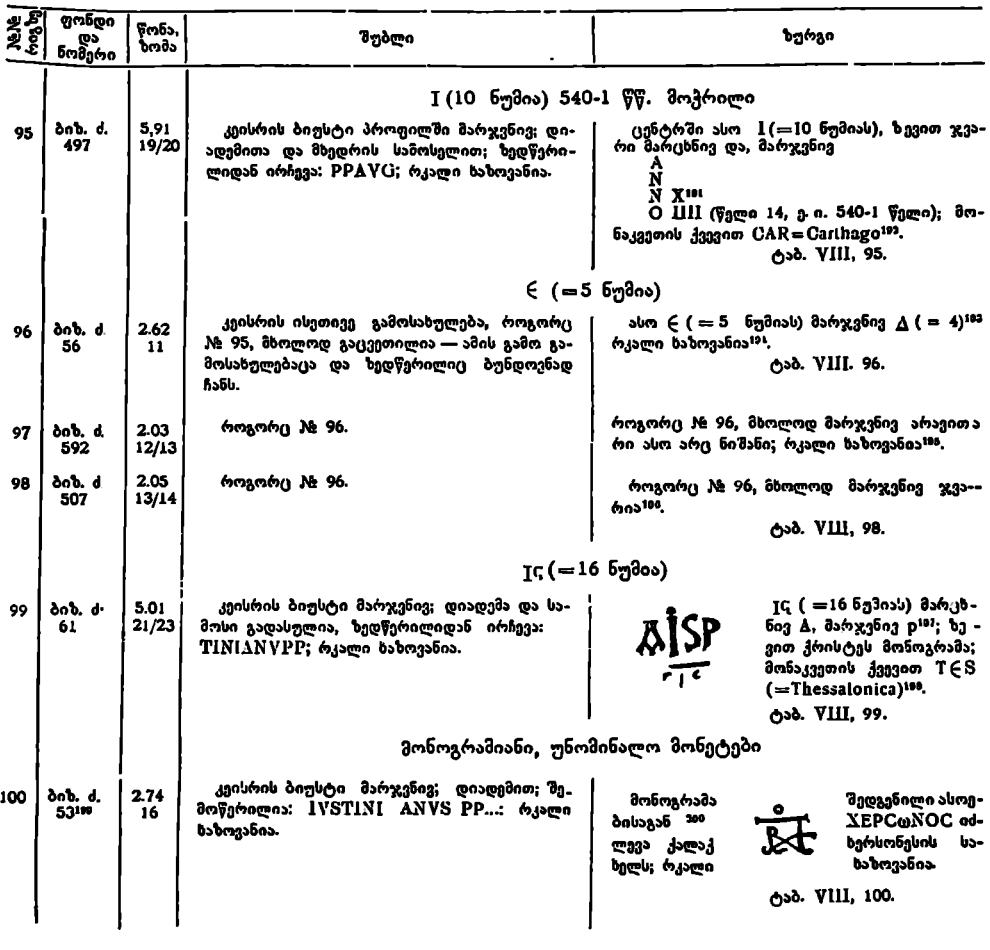 №№ რიგზე
ფონდი და ნომერი
წონა, ზომა
შუბლი
ზურგი
I (10 ნუმია) 540-1 წწ. მოჭრილი
95
ბიზ. დ.
497
5,91
19/20
კეისრის ბიუსტი პროფილში მარჯვნივ; დი-
ადემითა და მხედრის სამოსელით; ზედწერი-
ლიდან ირჩევა: PPAVG; რკალი ხაზოვანია.
ცენტრში ასო I (=10 ნუმიას), ზევით ჯვა-
რი მარცხნივ და, მარჯვნივ
A
N
N X¹⁹¹
O IIII (წელი 14, ე. ი. 540-1 წელი); მო-
ნაკვეთის ქვევით CAR=Carthago¹⁹².
ტაბ. VIII, 95.
Є (=5 ნუმია)
96
ბიზ. დ
56
2.62
11
კეისრის ისეთივე გამოსახულება, როგორც
№ 95, მხოლოდ გაცვეთილია — ამის გამო გა-
მოსახულებაცა და ზედწერილიც ბუნდოვნად
ჩანს.
ასო Є (=5 ნუმიას) მარჯვნივ Δ (=4)¹⁹³
რკალი ხაზოვანია¹⁹⁴.
ტაბ. VIII. 96.
97
ბიზ. დ.
592
2.03
12/13
როგორც № 96.
როგორც № 96, მხოლოდ მარჯვნივ არავითა
რი ასო არც ნიშანი; რკალი ხაზოვანია¹⁹⁵.
98
ბიზ. დ
507
2.05
13/14
როგორც № 96.
როგორც № 96, მხოლოდ მარჯვნივ ჯვა--
რია¹⁹⁶.
ტაბ. VIII, 98.
Iς (=16 ნუმია)
99
ბიზ. დ·
61
5.01
21/23
კეისრის ბიუსტი მარჯვნივ; დიადემა და სა-
მოსი გადასულია, ზედწერილიდან ირჩევა:
TINIANVPP; რკალი ხაზოვანია.
AISP
Iς (=16 ნუმიას) მარცხ-
ნივ Δ, მარჯვნივ p¹⁹⁷; ზე-
ვით ქრისტეს მონოგრამა;
მონაკვეთის ქვევით TЄS
(=Thessalonica)¹⁹⁸.
ტაბ. VIII, 99.
მონოგრამიანი, უნომინალო მონეტები
100
ბიზ. დ.
53¹⁹⁹
2.74
16
კეისრის ბიუსტი მარჯვნივ; დიადემით; შე-
მოწერილია: IVSTINI ANVS PP...: რკალი
ხაზოვანია.
მონოგრამა შედგენილი ასოე-
ბისაგან ²⁰⁰ XEPCωNOC იძ-
ლევა ქალაქ ხერსონესის სა-
ხელს; რკალი ხაზოვანია.
ტაბ. VIII, 100.